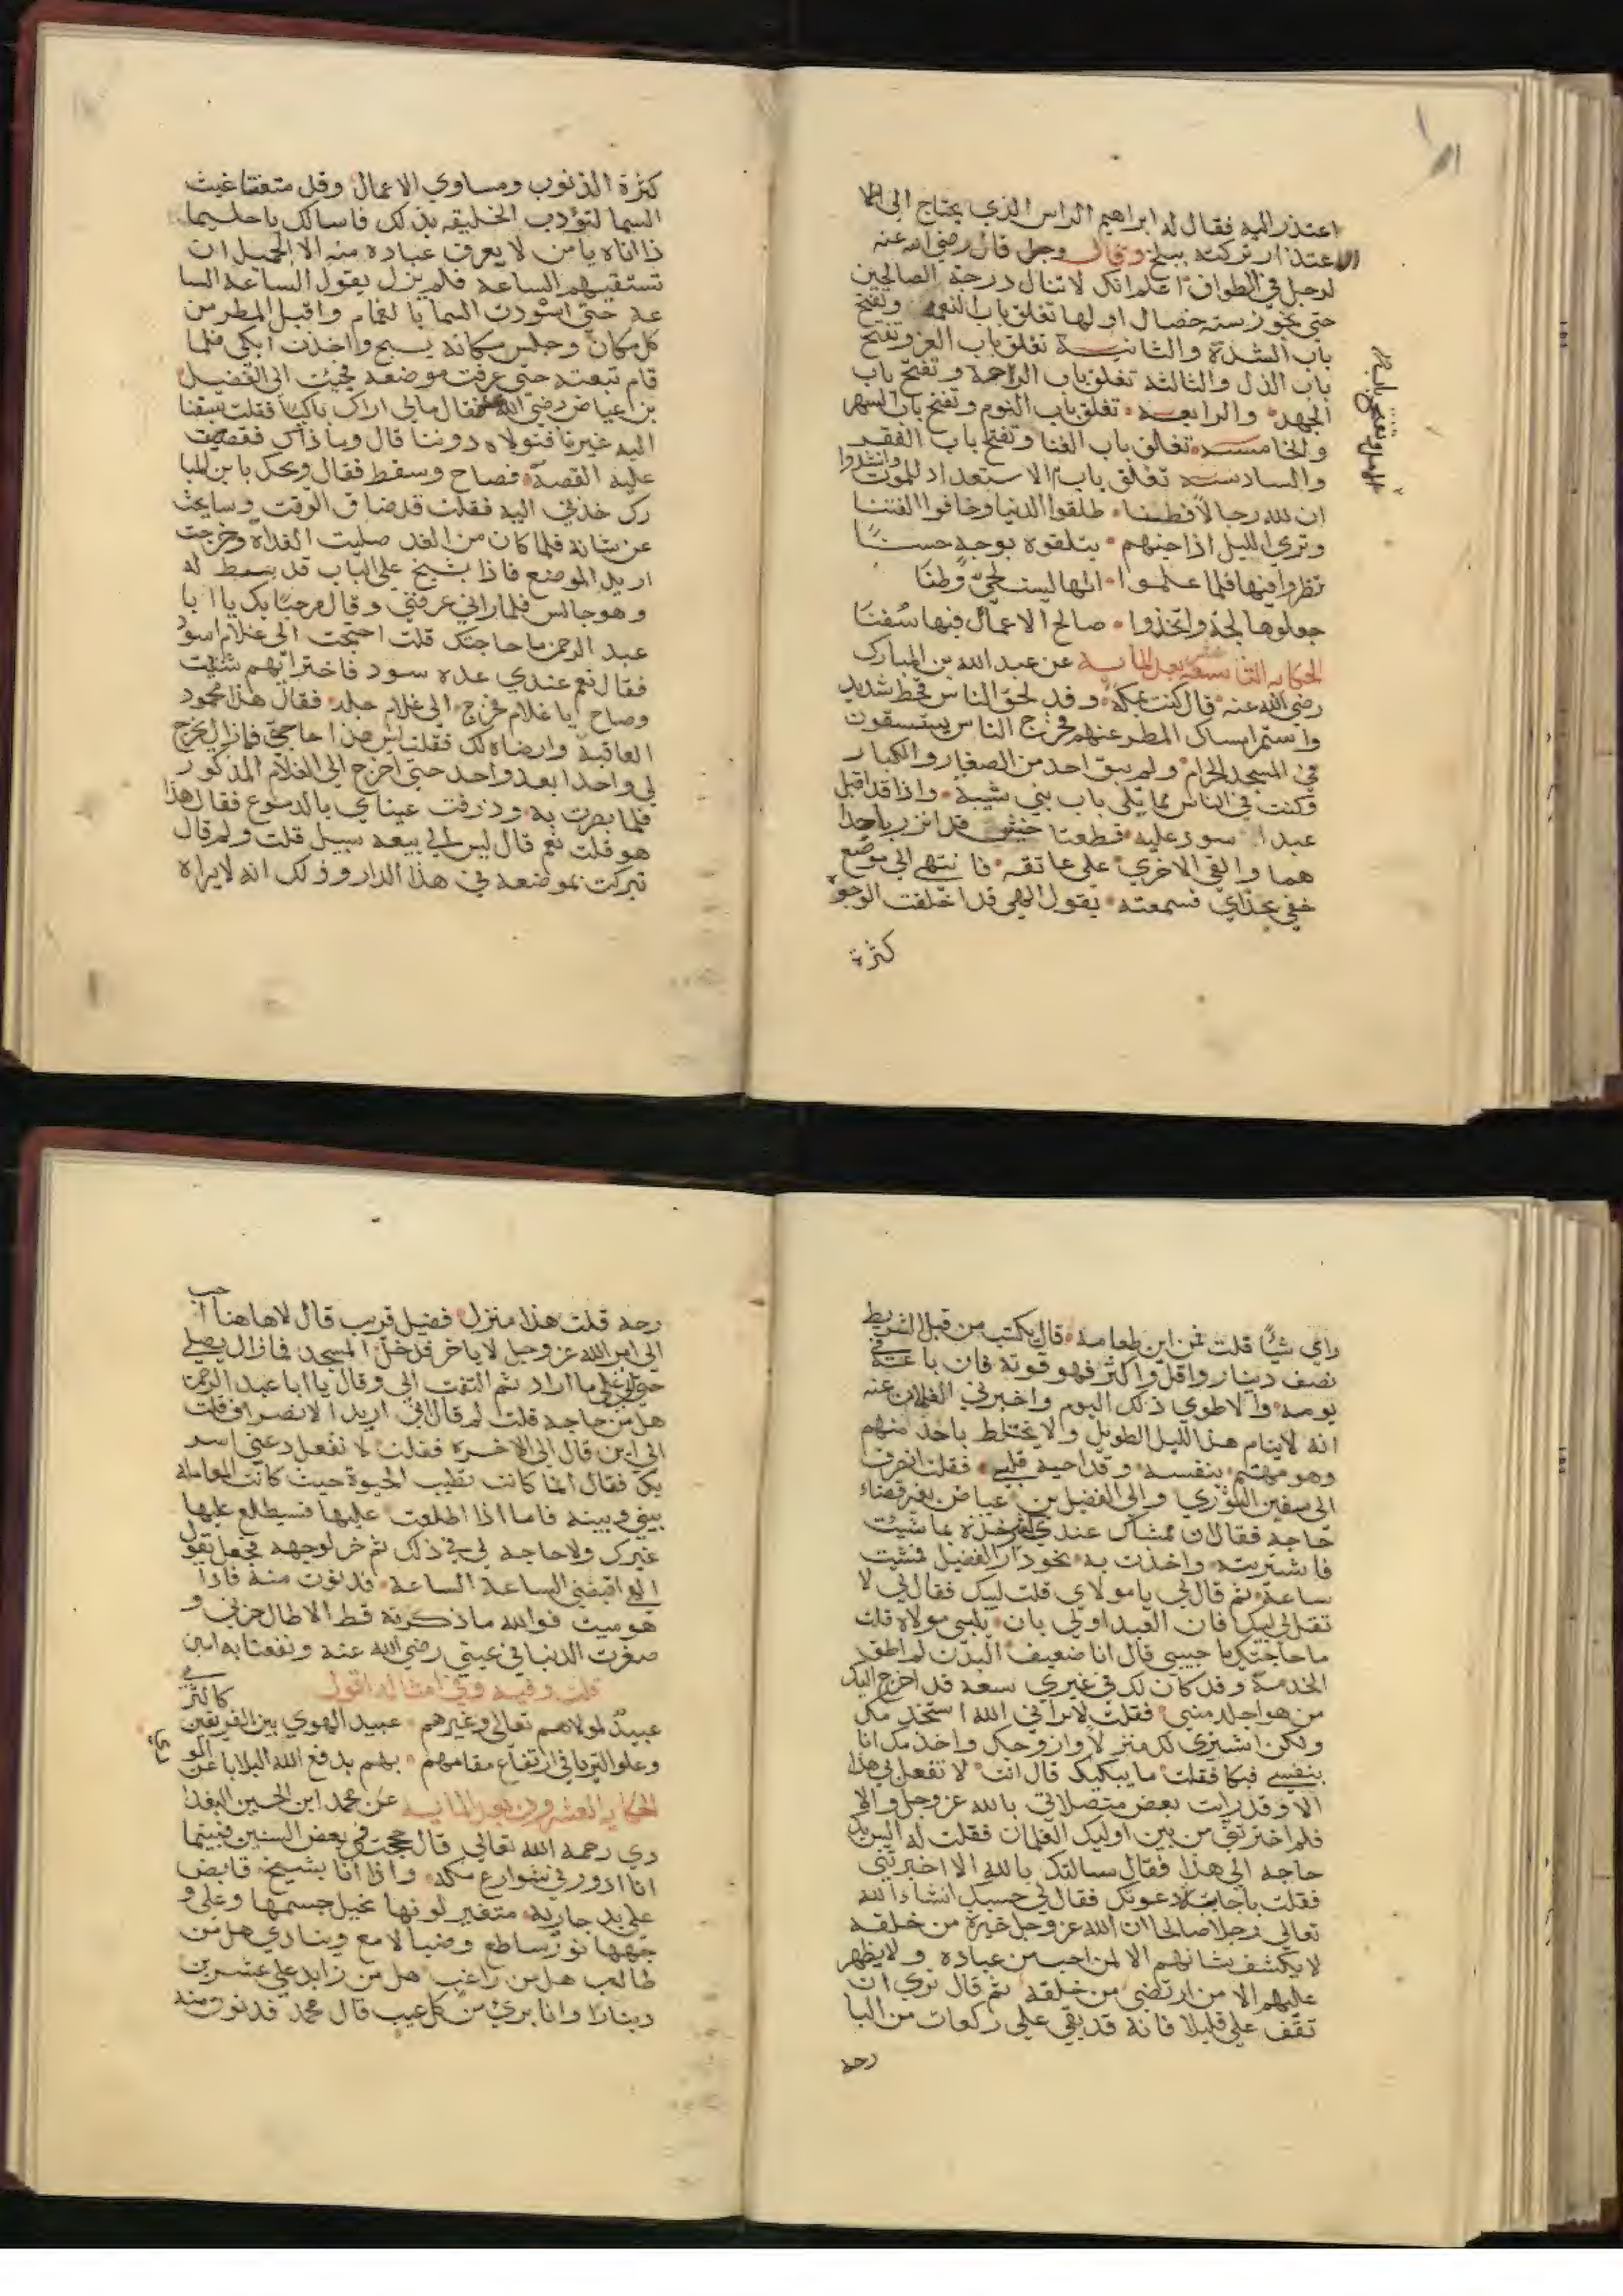 اعتذر اليه فقال له ابراهيم الراس الذي يحتاج الى
الاعتذار تركته ببلخ وقال وجل قال رضي الله عنه
لرجل في الطواف اعلم انك لا تنال درجة الصالحين
حتى تجوز ستة خصال اولها تغلق باب النعمة وتفتح
باب الشدة والثانية تغلق باب العز وتفتح
باب الذل والثالثة تغلق باب الراحة وتفتح باب
الجهد والرابعه تغلق باب النوم وتفتح باب السهر
والخامسه تغلق باب الغنا وتفتح باب الفقر
والسادسه تغلق باب الاستعداد للموت وانشدوا
ان لله رجالا فطنا طلقوا الدنيا وخافوا الفتنا
وتري الليل اذا جنهم يتلقوه بوجه حسنا
نظروا فيها فلما علموا انها ليست لحي وطنا
جعلوها لجة واتخذوا صالح الاعمال فيها سفنا
الحكايه التاسعة عشر بعد المايه عن عبد الله بن المبارك
رضي الله عنه قال كنت بمكة وقد لحق الناس قحط شديد
واستمر امساك المطر عنهم فخرج الناس يستسقون
في المسجد الحرام ولم يبق احد من الصغار والكبار
وكنت في الناس مما يلي باب بني شيبة واذا قد اقبل
عبد اسود عليه قطعتا خيش قد اتزر باحدا
هما والقي الاخري على عاتقه فانتهي الى موضع
خفي بحذاي فسمعته يقول الهي قد اخلقت الوجوه
كثرة
كثرة الذنوب ومساوي الاعمال وقل منعتنا غيث
السما لتؤدب الخليقه بذلك فاسالك يا حليما
ذا اناه يا من لا يعرف عباده منه الا الجميل ان
تسقيهم الساعة فلم يزل يقول الساعة السا
عة حتى استودت السما بالغمام واقبل المطر من
كل مكان وجلس مكانه يسبح واخذت ابكي فلما
قام تبعته حتى عرفت موضعه فجئت الى الفضيل
بن عياض رضي الله عنه فقال مالي اراك باكيا فقلت سبقنا
اليه غيرنا فتولاه دوننا قال وما ذاك فقصيت
عليه القصة فصاح وسقط فقال ويحك يا بن المبا
رك خذني اليه فقلت قد ضاق الوقت وسابحث
عن شانه فلما كان من الغد صليت الغداة وخرجت
اريد الموضع فاذا بشيخ على الباب قد بسط له
وهو جالس فلما راني عرفني وقال مرحبا بك يا ابا
عبد الرحمن ما حاجتك قلت احتجت الى غلام اسود
فقال نعم عندي عده سود فاختر ايهم شئت
وصاح يا غلام فخرج الى غلام جلد فقال هذا محمود
العاقبة وارضاه لك فقلت ليس هذا حاجتي فما زال يخرج
لي واحدا بعد واحد حتى اخرج الى الغلام المذكور
فلما بصرت به وذرفت عيناي بالدموع فقال هذا
هو قلت نعم قال ليس لي بيعه سبيل قلت ولم قال
تبركت بموضعه في هذا الدار وذلك انه لا يراه
راي شيا قلت فمن اين طعامه قال يكتسب من قبل الشريط
نصف دينار واقل واكثر فهو قوته فان باعه في
يومه والا طوي ذلك اليوم واخبرني الغلمان عنه
انه لا ينام هذا الليل الطويل ولا يختلط باحد منهم
وهو مهتم بنفسه وقد احبه قلبي فقلت انصرف
الى سفين الثوري والى الفضل بن عياض بغير قضاء
حاجه فقال ان ممشاك عندي كبير خذه بما شيت
فاشتريته واخذت به نحو دار الفضيل فمشيت
ساعة ثم قال لي يا مولاي قلت لبيك فقال لي لا
تقل لي لبيك فان العبد اولي بان يلبي مولاه قلت
ما حاجتك يا حبيبي قال انا ضعيف البدن لم اطق
الخدمة وقد كان لك في غيري سعة قد اخرج اليك
من هو اجلد مني فقلت لا يراني الله استخدمك
ولكن اشتري لك منزلا وازوجك واخدمك انا
بنفسي فبكا فقلت ما يبكيك قال انت لا تفعل بي هذا
الا وقد رايت بعض متصلاتي بالله عز وجل والا
فلم اخترتني من بين اوليك الغلمان فقلت له ليس بك
حاجة الى هذا فقال سالتك بالله الا اخبرتني
فقلت باجابة دعوتك فقال لي حسبك انشا الله
تعالى رجلا صالحا ان الله عز وجل خيرة من خلقه
لا يكشف شانهم الا لمن احب من عباده ولا يظهر
عليهم الا من ارتضى من خلقه ثم قال نري ان
تقف علي قليلا فانه قد بقي علي ركعات من البا
رحة
رحة قلت هذا منزل فضيل قريب قال لا هاهنا احب
الي امر الله عز وجل لا ياخر فدخل المسجد فما زال يصلي
حتى اتى على ما اراد ثم التفت الي وقال يا ابا عبد الرحمن
هل من حاجة قلت لم قال اني اريد الانصراف قلت
الى اين قال الى الاخرة فقلت لا تفعل دعني اسر
بك فقال انما كانت تطيب الحيوة حيث كانت المعامله
بيني وبينه فاما اذا اطلعت عليها فسيطلع عليها
غيرك ولا حاجه لي في ذلك ثم خر لوجهه فجعل يقول
الهي اقبضني الساعة الساعة فدنوت منه فاذا
هو ميت فوالله ما ذكرته قط الا طال حزني و
صغرت الدنيا في عيني رضي الله عنه ونفعنا به امين
قلت وفيه وفي امثاله اقول
عبيد لمولاهم تعالى وغيرهم عبيد الهوي بين الفريقين كالثر
وعلو الثريا في ارتفاع مقامهم بهم يدفع الله البلايا عن الو
ري
الحكايه العشرون بعد المايه عن محمد ابن الحسين البغدا
دي رحمه الله تعالى قال حججت في بعض السنين فبينما
انا ادور في شوارع مكه واذا انا بشيخ قابض
على يد جارية متغير لونها نحيل جسمها وعلى و
جهها نور ساطع وضيا لامع وينادي هل من
طالب هل من راغب هل من زايد على عشرين
دينارا وانا بري من كل عيب قال محمد فدنوت منه